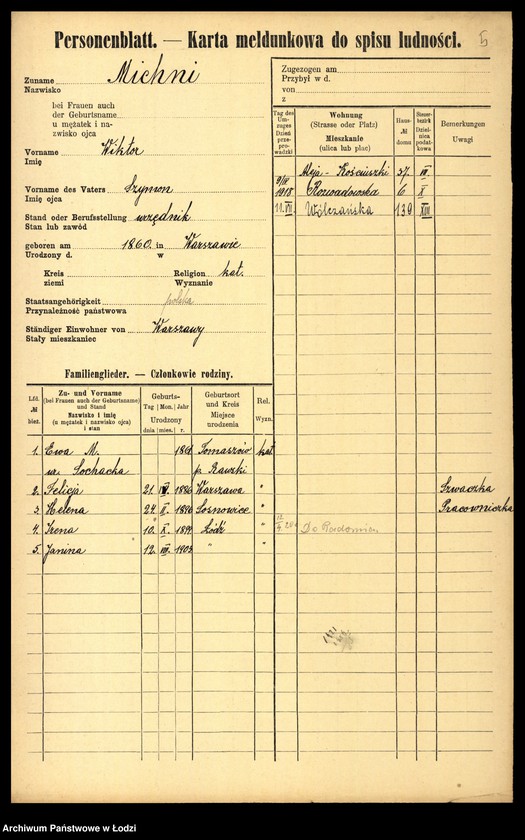 Personenblatt. — Karta meldunkowa do spisu ludności.
5
Zuname Michni
Nazwisko
bei Frauen auch
der Geburtsname
u mężatek i na-
zwisko ojca
Vorname Wiktor
Imię
Vorname des Vaters Szymon
Imię ojca
Stand oder Berufsstellung urzędnik
Stan lub zawód
geboren am 1860. in Warszawie
Urodzony d. w
Kreis Religion kat.
ziemi Wyznanie
Staatsangehörigkeit polska
Przynależność państwowa
Ständiger Einwohner von Warszawy
Stały mieszkaniec
Zugezogen am
Przybył w d.
von
z
Tag des Um-zuges Dzień prze-prowadzki
Wohnung (Strasse oder Platz) Mieszkanie (ulica lub plac)
Haus- № domu
Steuer-bezirk Dziel-nica podat-kowa
Bemerkungen Uwagi
Aleja - Kościuszki 37. III.
9/IX 1918 Rozwadowska 6 X
11.VII. Wólczańska 139 XIII
Familienglieder. — Członkowie rodziny.
Lfd. № bież.
Zu- und Vorname (bei Frauen auch der Geburtsname) und Stand Nazwisko i imię (u mężatek i nazwisko ojca) i stan
Geburts- Tag Mon. Jahr Urodzony dnia mies. r.
Geburtsort und Kreis Miejsce urodzenia
Rel. Wyzn.
1. Ewa M. Tomaszów kat.
ur. Sochacka p. Rawski
2. Felicja 21. 1886 Warszawa " Szwaczka
3. Helena 24. II. 1886 Sosnowice " Pracowniczka
4. Irena 10. X. Łódź " Do Radomia
5. Janina 12. VII. 1903 " "
Archiwum Państwowe w Łodzi